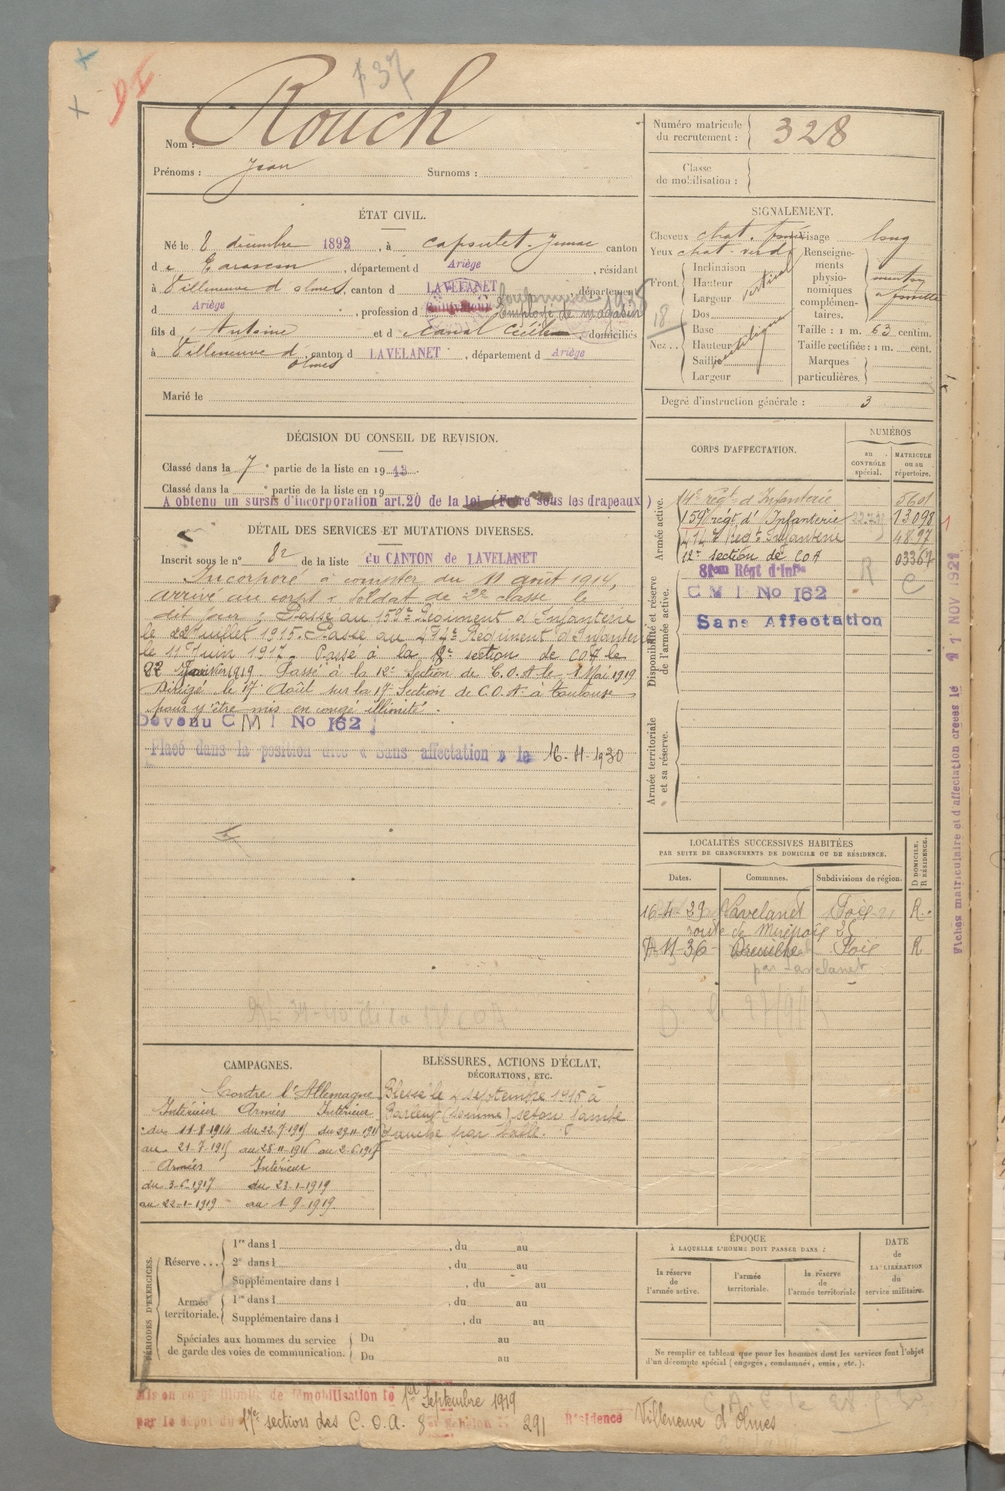 137
Nom : Rouch
Prénoms : Jean Surnoms :
Numéro matricule du recrutement : 328
Classe de mobilisation :
ÉTAT CIVIL.
Né le 8 décembre 1892, à Capoulet-Junac canton
de Tarascon, département d Ariège, résidant
à Villeneuve d'olmes, canton d LAVELANET département
d Ariège, profession d employé de magasin
fils d' Antoine et d domiciliés
à Villeneuve d'olmes canton d LAVELANET, département d Ariège
Marié le
SIGNALEMENT.
Cheveux chat. Visage long
Yeux chat. verd
Front. Inclinaison Hauteur Largeur vertical
Nez. Dos Base Hauteur Saillie Largeur
Renseignements physionomiques complémentaires.
menton à fossette
Taille : 1 m. 63 centim.
Taille rectifiée : 1 m. cent.
Marques particulières.
Degré d'instruction générale : 3
DÉCISION DU CONSEIL DE REVISION.
Classé dans la 7e partie de la liste en 1913.
Classé dans la e partie de la liste en 19
A obtenu un sursis d'incorporation art.20 de la loi (Frère sous les drapeaux)
DÉTAIL DES SERVICES ET MUTATIONS DIVERSES.
Inscrit sous le n° 82 de la liste du CANTON de LAVELANET
Incorporé à compter du 11 août 1914,
arrivé au corps & soldat de 2e classe le
dit jour ; Passé au 159e Régiment d'Infanterie
le 22 juillet 1915. Passé au 414e Régiment d'Infanterie
le 11 Juin 1917. Passé à la 8e section de COA le
22 Janvier 1919 Passé à la 12e Section de C.O.A le 1 Mai 1919
Dirigé le 17 Août sur la 17 Section de C.O.A à Toulouse
pour y être mis en congé illimité.
Devenu C M I No 162
Placé dans la position dite « Sans affectation » le
CORPS D'AFFECTATION.
NUMÉROS
au CONTRÔLE spécial.
MATRICULE ou au répertoire.
Armée active.
14e régt d'Infanterie
159e régt d'Infanterie 13098
414e Régt Infanterie 4897
12e section de COA
81eme Régt d'Infie
C M I No 162
Sans Affectation
Disponibilité et réserve de l'armée active.
Armée territoriale et sa réserve.
Fiches matriculaire et d'affectation créées le 11 NOV 1921
LOCALITÉS SUCCESSIVES HABITÉES
PAR SUITE DE CHANGEMENTS DE DOMICILE OU DE RÉSIDENCE.
Dates. Communes. Subdivisions de région. D DOMICILE. R RÉSIDENCE.
16-4-29 Lavelanet Foix R.
route de Mirepoix 25
Dreuilhe Foix R
par Lavelanet
CAMPAGNES.
Contre l'Allemagne
Intérieur Armées Intérieur
du 11-8-1914 du 22-7-1915 du 29-11-1916
au 21-7-1915 au 28-11-1916 au 2-6-1917
Armées Intérieur
du 3-6-1917 du 23-1-1919
au 22-1-1919 au 1-9-1919.
BLESSURES, ACTIONS D'ÉCLAT,
DÉCORATIONS, ETC.
Blessé le septembre 1915 à
(Somme)
gauche par balle.
PÉRIODES D'EXERCICES.
Réserve . . . 1re dans l , du au
2e dans l , du au
Supplémentaire dans l , du au
Armée territoriale. 1re dans l , du au
Supplémentaire dans l , du au
Spéciales aux hommes du service de garde des voies de communication. Du au
Du au
ÉPOQUE
À LAQUELLE L'HOMME DOIT PASSER DANS :
la réserve de l'armée active.
l'armée territoriale.
la réserve de l'armée territoriale
DATE de LA LIBÉRATION du service militaire.
Ne remplir ce tableau que pour les hommes dont les services font l'objet
d'un décompte spécial (engagés, condamnés, omis, etc.).
Mis en congé illimité de démobilisation le 1er Septembre 1919
par le dépôt du 17e sections des C. O. A. 291 Résidence Villeneuve d'Olmes